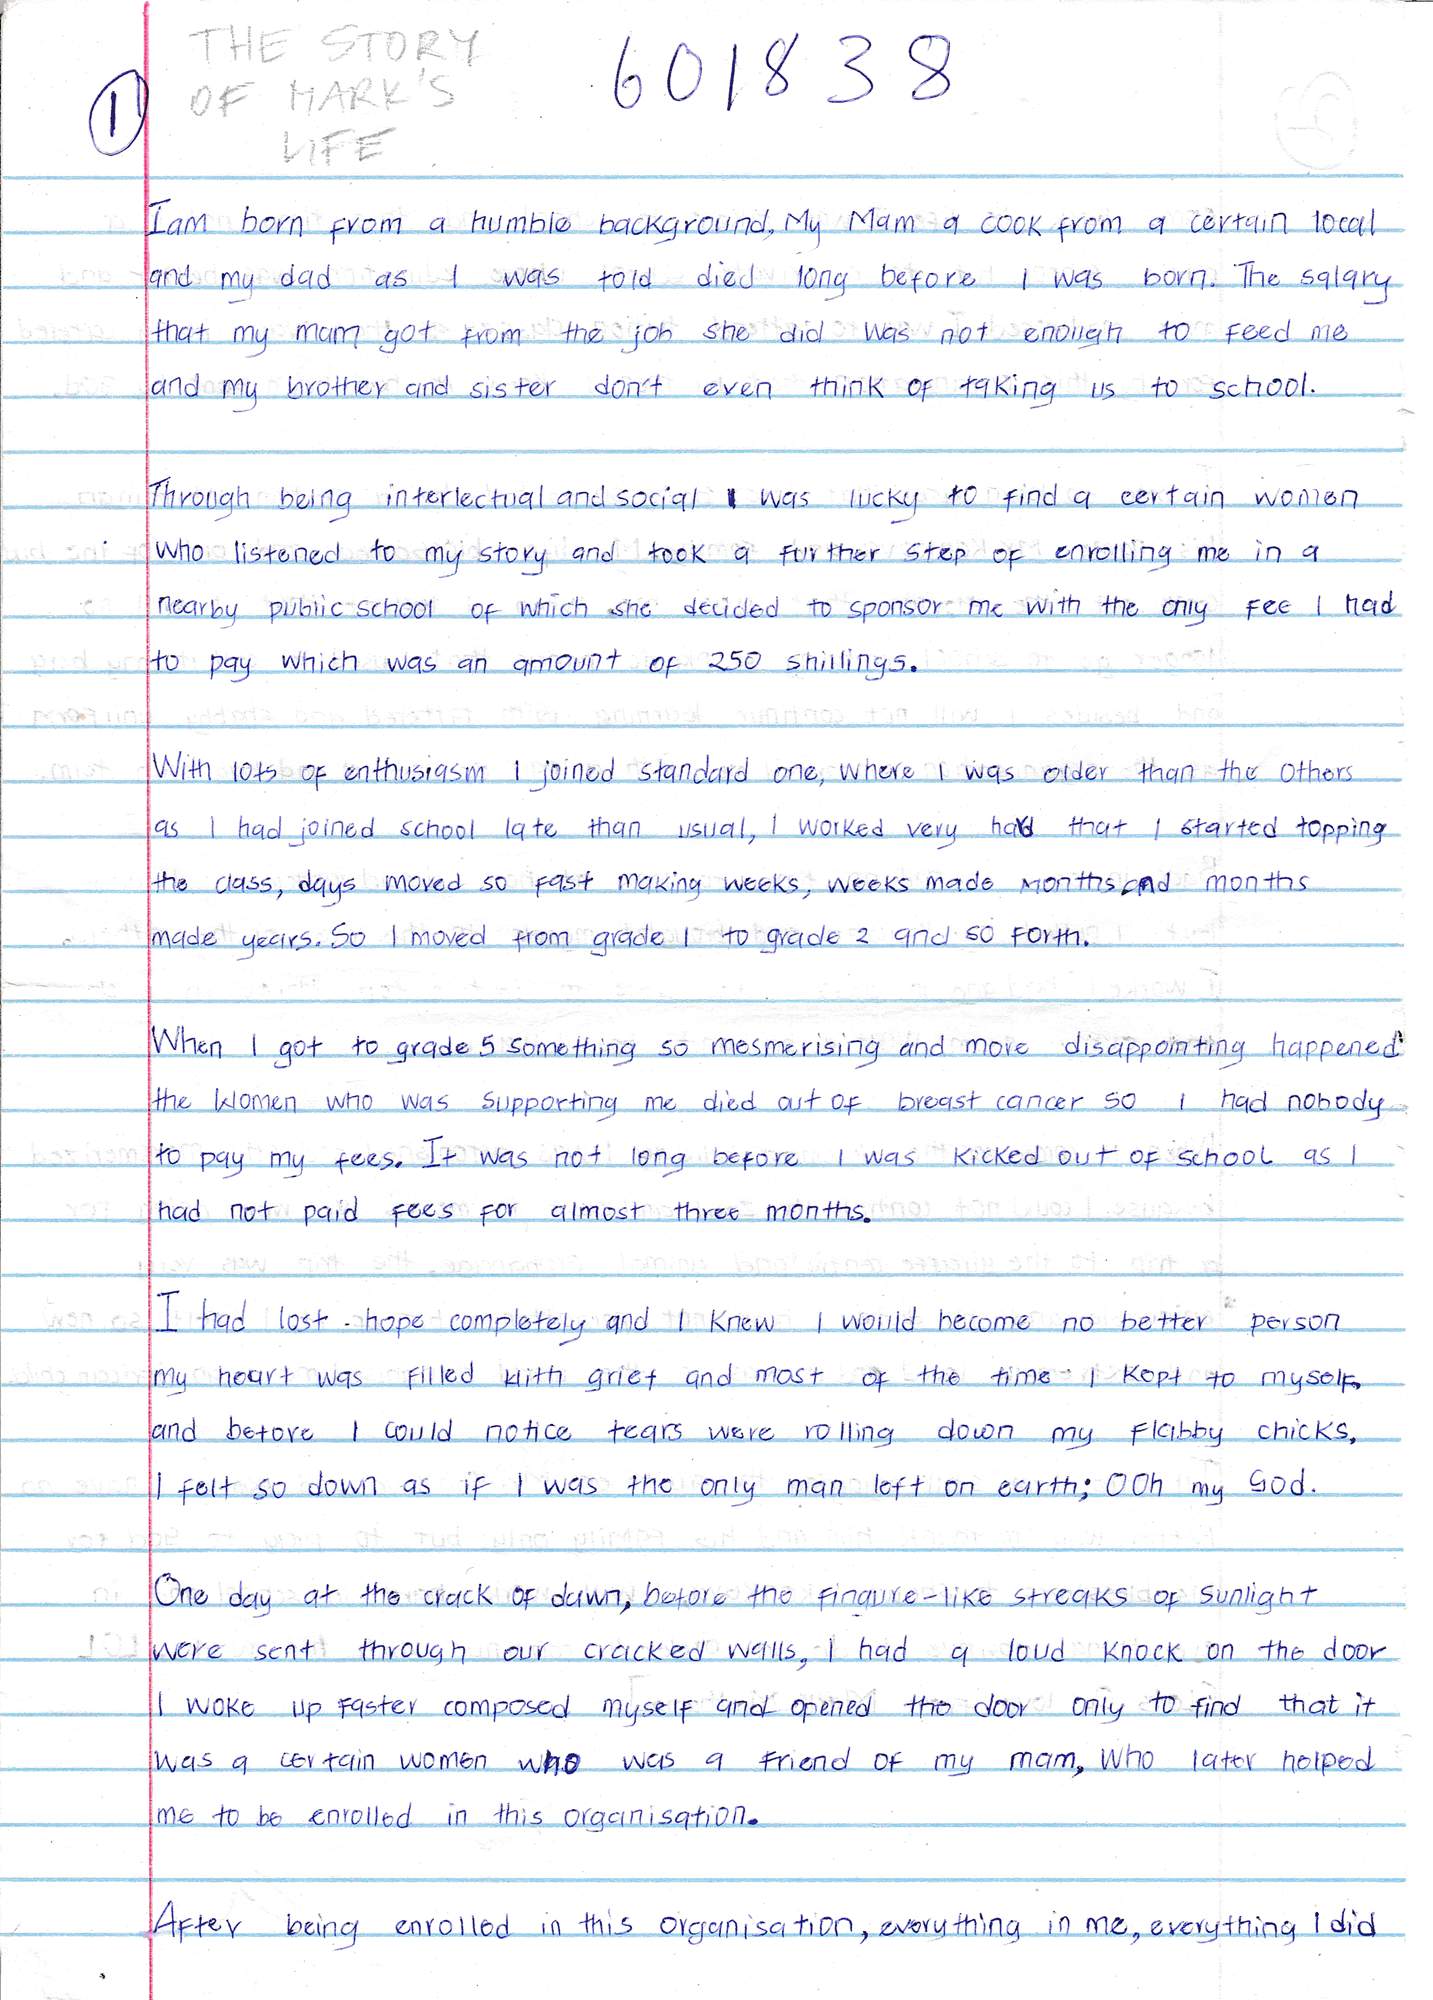 THE STORY
OF MARK'S
LIFE
601838
1
Iam born from a humble background, My Mam a cook from a certain local
and my dad as I was told died long before I was born. The salary
that my mam got from the job she did was not enough to feed me
and my brother and sister don't even think of taking us to school.
Through being interlectual and social I was lucky to find a certain women
who listened to my story and took a further step of enrolling me in a
nearby public school of which she decided to sponsor me with the only fee I had
to pay which was an amount of 250 shillings.
With lots of enthusiasm I joined standard one, where I was older than the others
as I had joined school late than usual, I worked very hard that I started topping
the class, days moved so fast making weeks, weeks made months and months
made years. So I moved from grade 1 to grade 2 and so forth.
When I got to grade 5 something so mesmerising and more disappointing happened
the women who was supporting me died out of breast cancer so I had nobody
to pay my fees. It was not long before I was kicked out of school as I
had not paid fees for almost three months.
I had lost hope completely and I knew I would become no better person
my heart was filled with grief and most of the time I kept to myself,
and before I could notice tears were rolling down my flabby chicks,
I felt so down as if I was the only man left on earth; OOh my God.
One day at the crack of dawn, before the fingure-like streaks of sunlight
were sent through our cracked walls, I had a loud knock on the door
I woke up faster composed myself and opened the door only to find that it
was a certain women who was a friend of my mam, who later helped
me to be enrolled in this organisation.
After being enrolled in this organisation, everything in me, everything I did